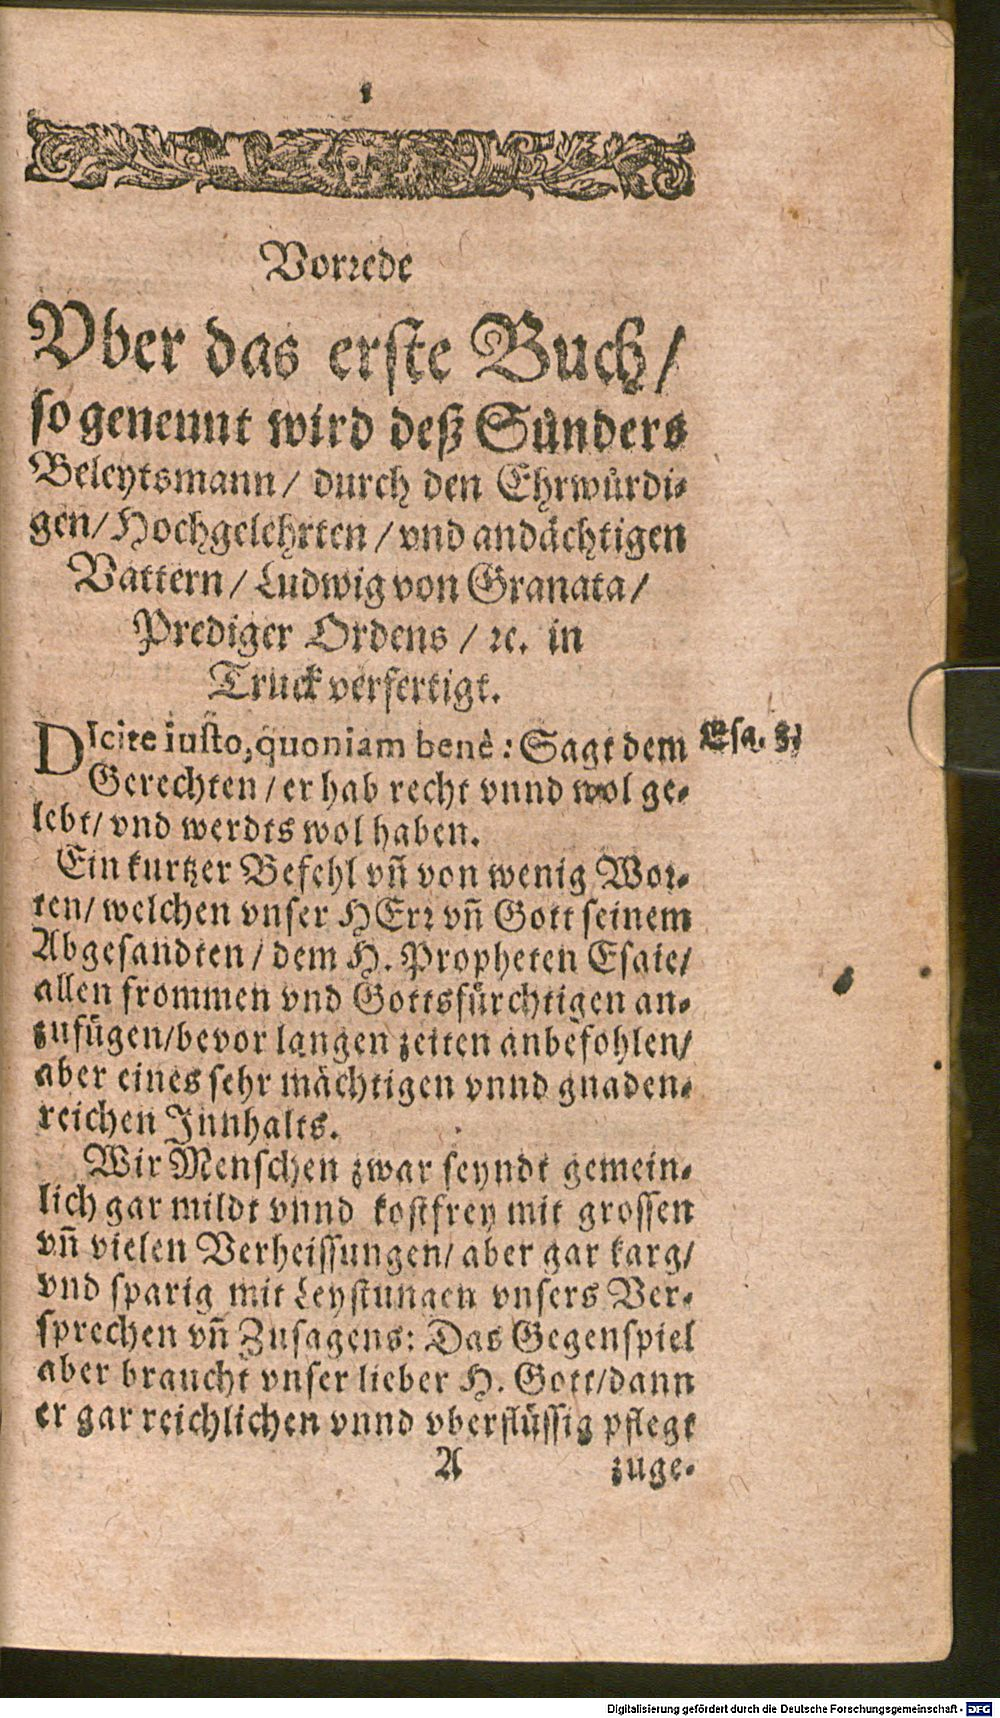 1
Vorrede
Vber das erste Buch/
so genennt wird deß Sünders
Beleytsmann/ durch den Ehrwürdi-
gen/ Hochgelehrten/ vnd andächtigen
Vattern/ Ludwig von Granata/
Prediger Ordens/ ꝛc. in
Truck verfertigt.
DIcite iusto, quoniam benè: Sagt dem
Esa. 3.
Gerechten/ er hab recht vnnd wol ge-
lebt/ vnd werdts wol haben.
Ein kurtzer Befehl vñ von wenig Wor-
ten/ welchen vnser HErr vñ Gott seinem
Abgesandten/ dem H. Propheten Esaie/
allen frommen vnd Gottsfürchtigen an-
zufügen/ bevor langen zeiten anbefohlen/
aber eines sehr mächtigen vnnd gnaden-
reichen Innhalts.
Wir Menschen zwar seyndt gemein-
lich gar mildt vnnd kostfrey mit grossen
vñ vielen Verheissungen/ aber gar karg/
vnd sparig mit Leystungen vnsers Ver-
sprechen vñ Zusagens: Das Gegenspiel
aber braucht vnser lieber H. Gott/ dann
er gar reichlichen vnnd vberflüssig pflegt
A zuge-
Digitalisierung gefördert durch die Deutsche Forschungsgemeinschaft - DFG